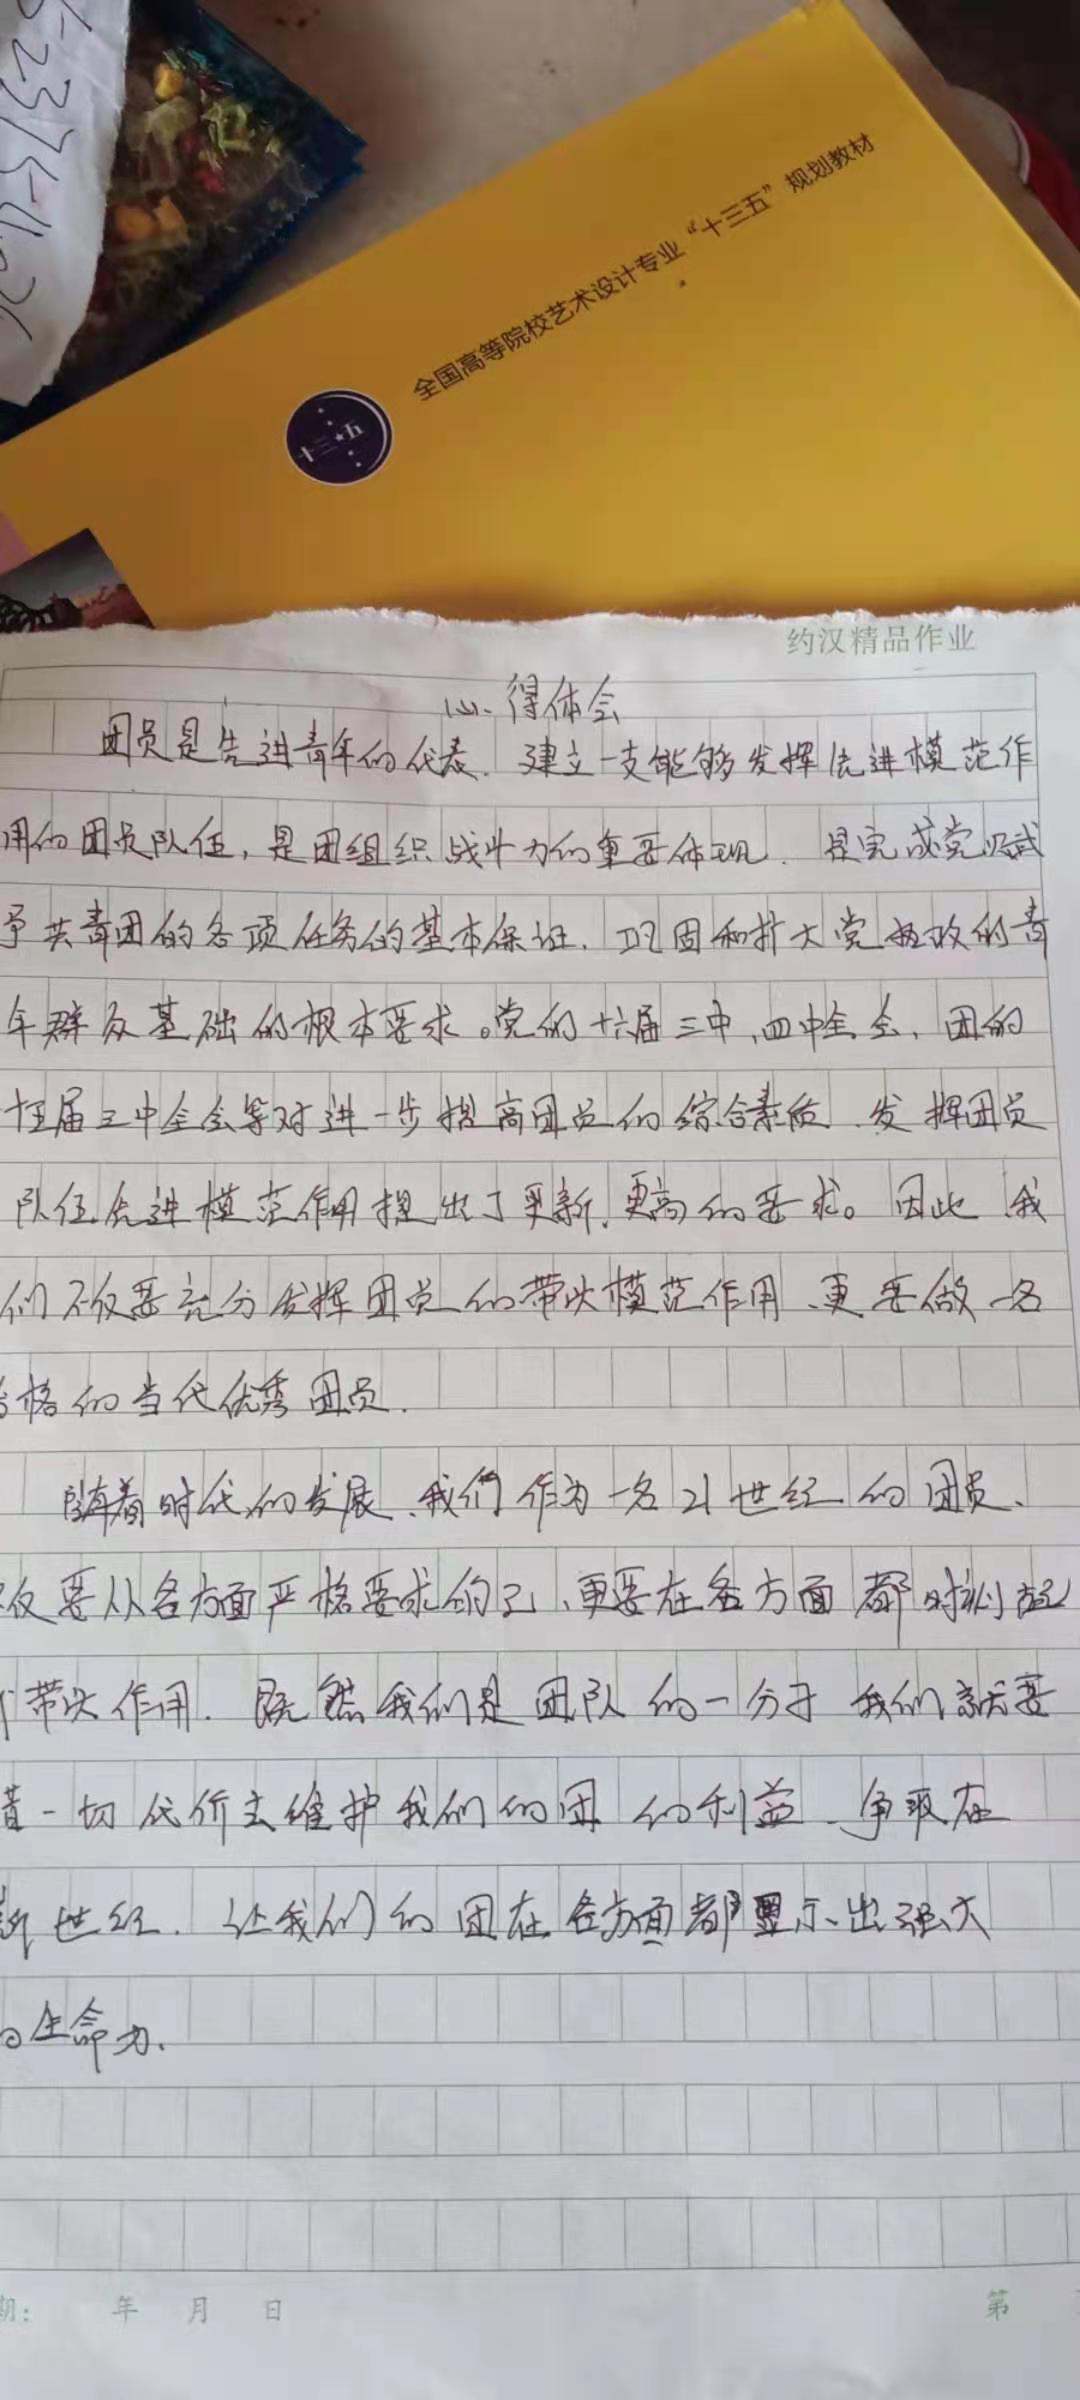 全国高等院校艺术设计专业“十三五”规划教材
十三五
约汉精品作业
心得体会
团员是先进青年的代表、建立一支能够发挥先进模范作
用的团员队伍,是团组织战斗力的重要体现、是完成党赋
予共青团的各项任务的基本保证、巩固和扩大党执政的青
年群众基础的根本要求。党的十六届三中、四中全会、团的
十五届三中全会等对进一步提高团员的综合素质、发挥团员
队伍先进模范作用提出了更新、更高的要求。因此 我
们不仅要充分发挥团员的带头模范作用、更要做一名
格的当代优秀团员.
随着时代的发展、我们作为一名21世纪的团员、
仅要从各方面严格要求的己、更要在各方面都时刻起
带头作用. 既然我们是团队的一分子 我们就要
一切代价去维护我们的团的利益、争取在
新世纪. 让我们的团在各方面都显示出强大
生命力.
期: 年 月 日
第